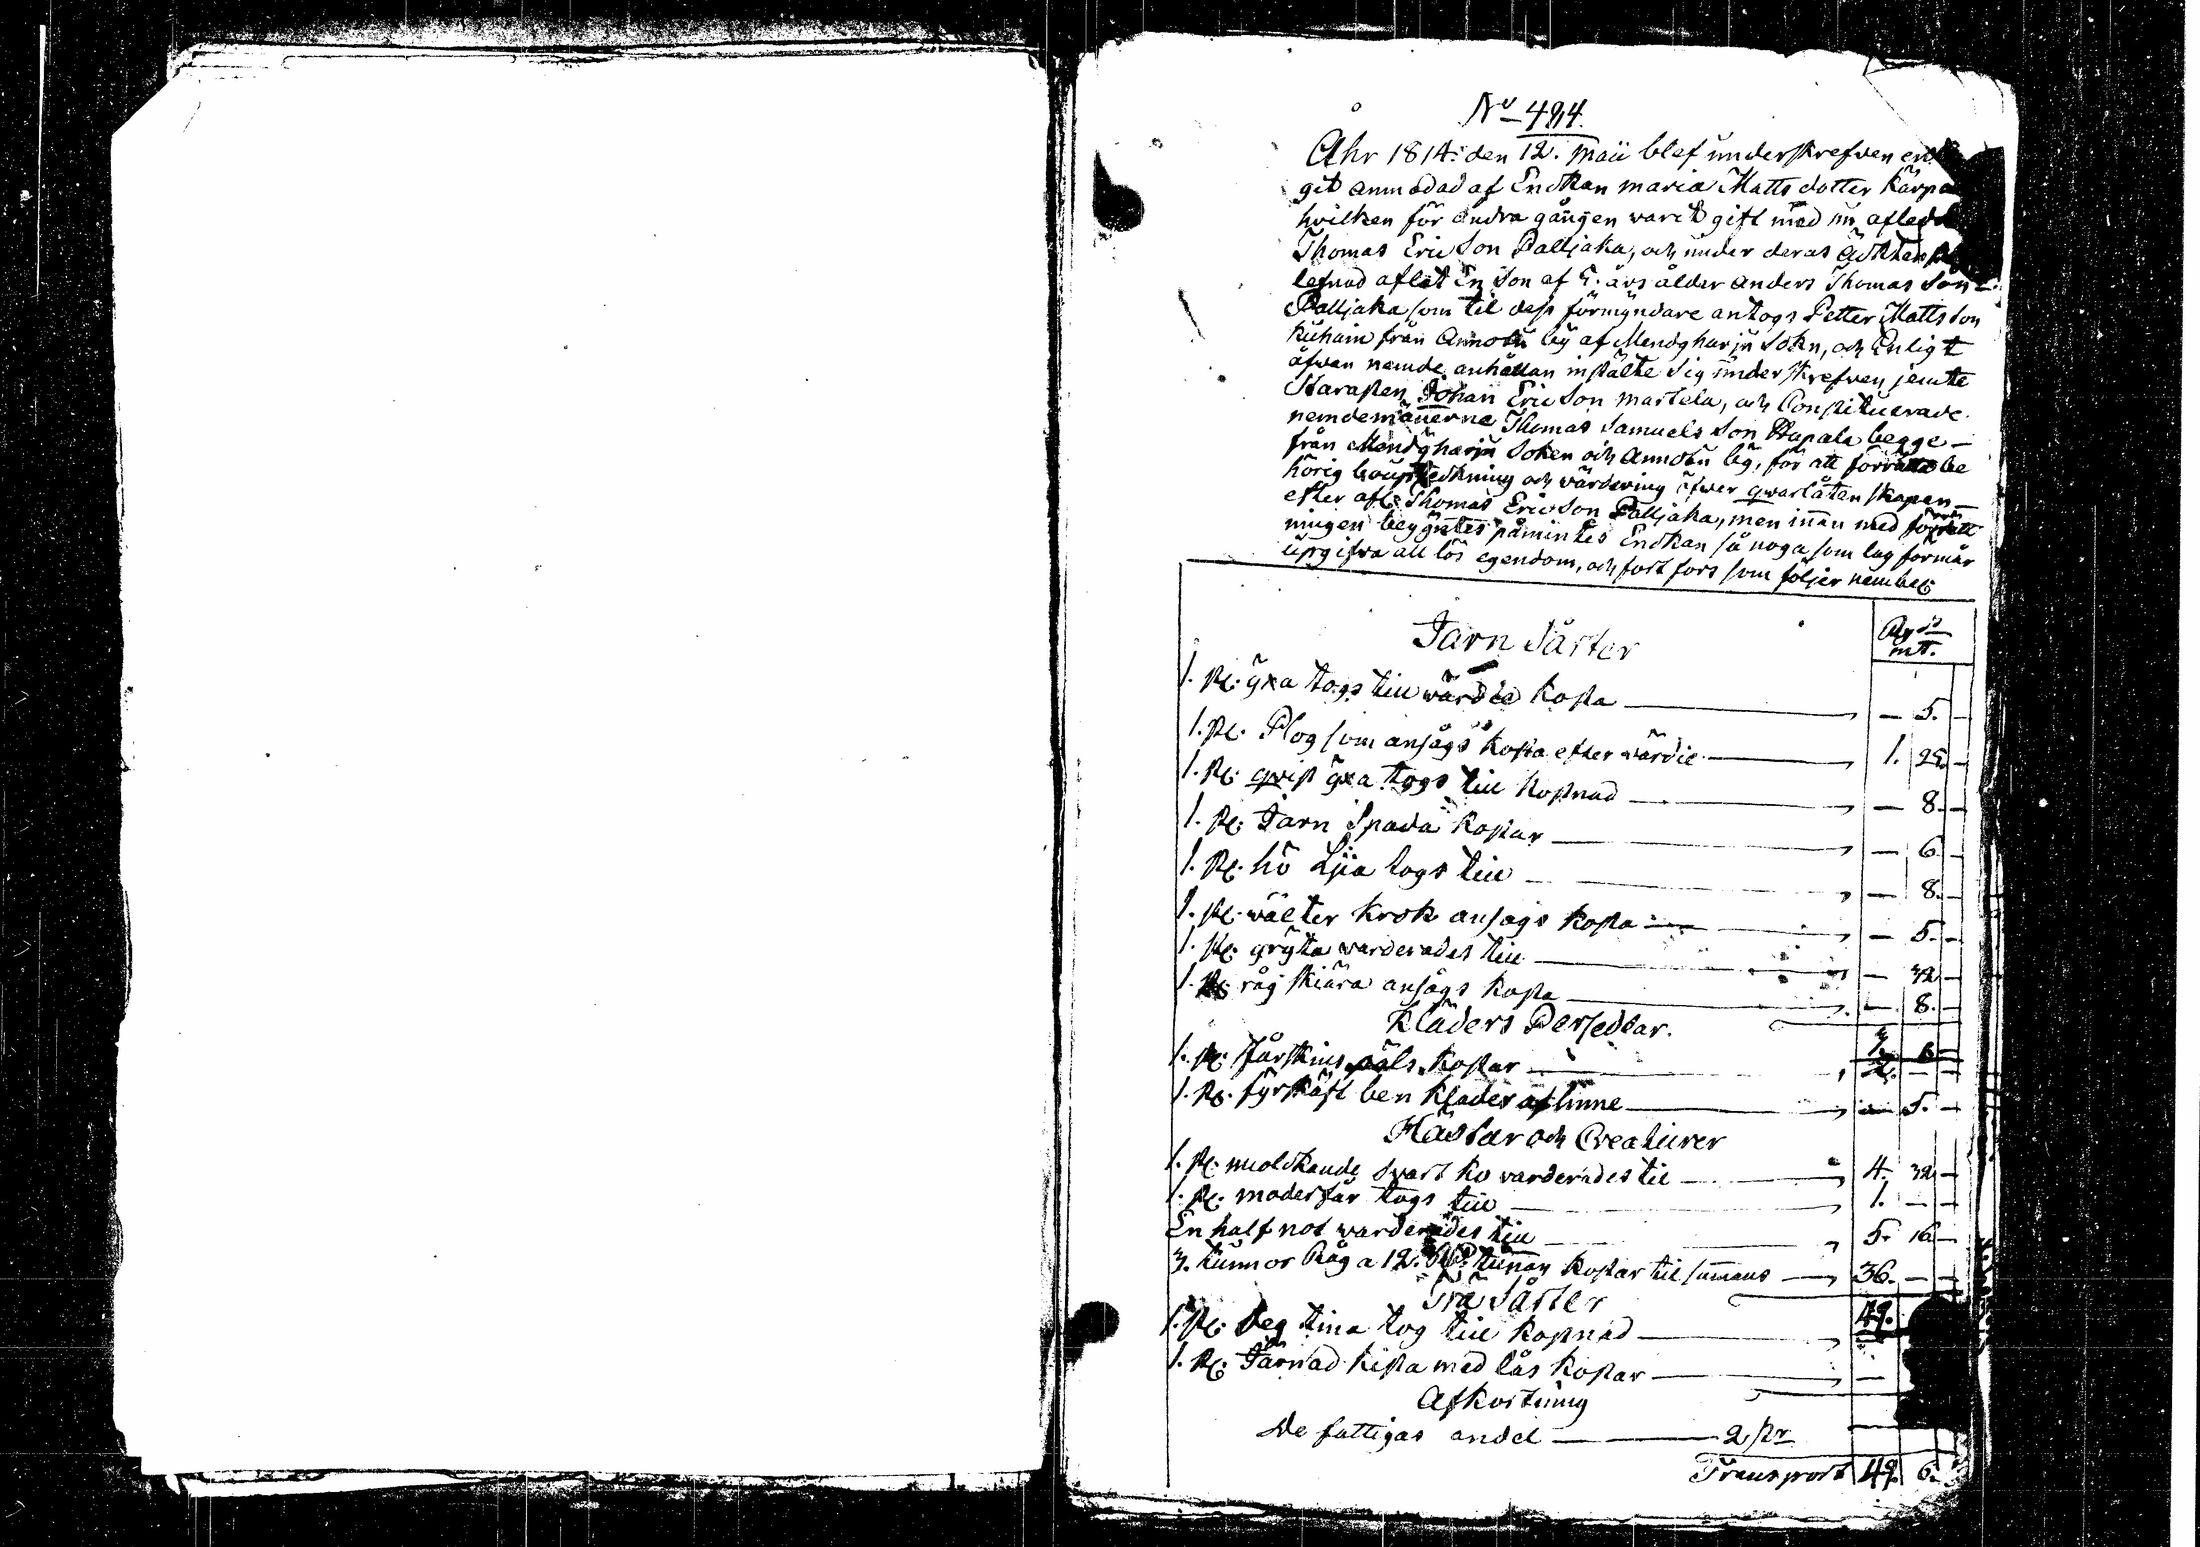 No 484.
Åhr 1814: den 12. Maii blef underskrefven
git anmodad af Enckan maria Matts dotter Kärpä
hvilken för andra gången warit gift med nu
Thomas Ericson Palljaka, och under deras
lefnad aflat En Son af 5. års ålder anders Thomas Son
Palljaka som til dess förmyndare antogs Petter Mattsson
från by af Sokn, och Enligt
åfvan nemde anhållan instälte sig underskrefven jemte
Starasten Johan Ericson martela, och Constituerade
nemdemänerne Thomas Samuels Son begge
från Soken och by, för att förrätta be
hörig boupteckning och wärdering öfwer qwarlåtenskapen
efter afl: Thomas Ericson Palljaka, men innan med
ningen begyntes påmintes Enckan så noga som lag förmår
upgifva all lös egendom, och fort fors som följer nembl:
Jarn Sårter
1. st: yxa togs till wärdie kosta — 5. —
1. st. Plog som ansågs kosta efter wärdie — 1. 25. —
1. st: qvist yxa togs till kostnad — 8. —
1. st: Jarn Spada kostar — 6. —
1. st: hö Ljia togs till — 8. —
1. st. wälter krok ansags kosta — 5. —
1. st: gryta warderades till — 32 —
1. st: råg skiära ansågs kosta — 8. —
Kläders Persedlar.
1. st: fårskins päls kostar — 2. —
1. st. fyrskäft ben klader af linne — 5. —
Hästar och Creaturer
1. st: molckande svart ko varderades til — 4. 32 —
1. st: moderfår togs till — 1. —
En half not warderades till — 5. 16 —
3. tunnor Råg a 12. tunnan kostar til sumans — 36. —
Trä Sårter
1. st: deg tina tog till kostnad — 49.
1. st: Järnad kista med lås kostar —
Afkortning
De fattigas andel — 2 pr
Transport 49. 6.